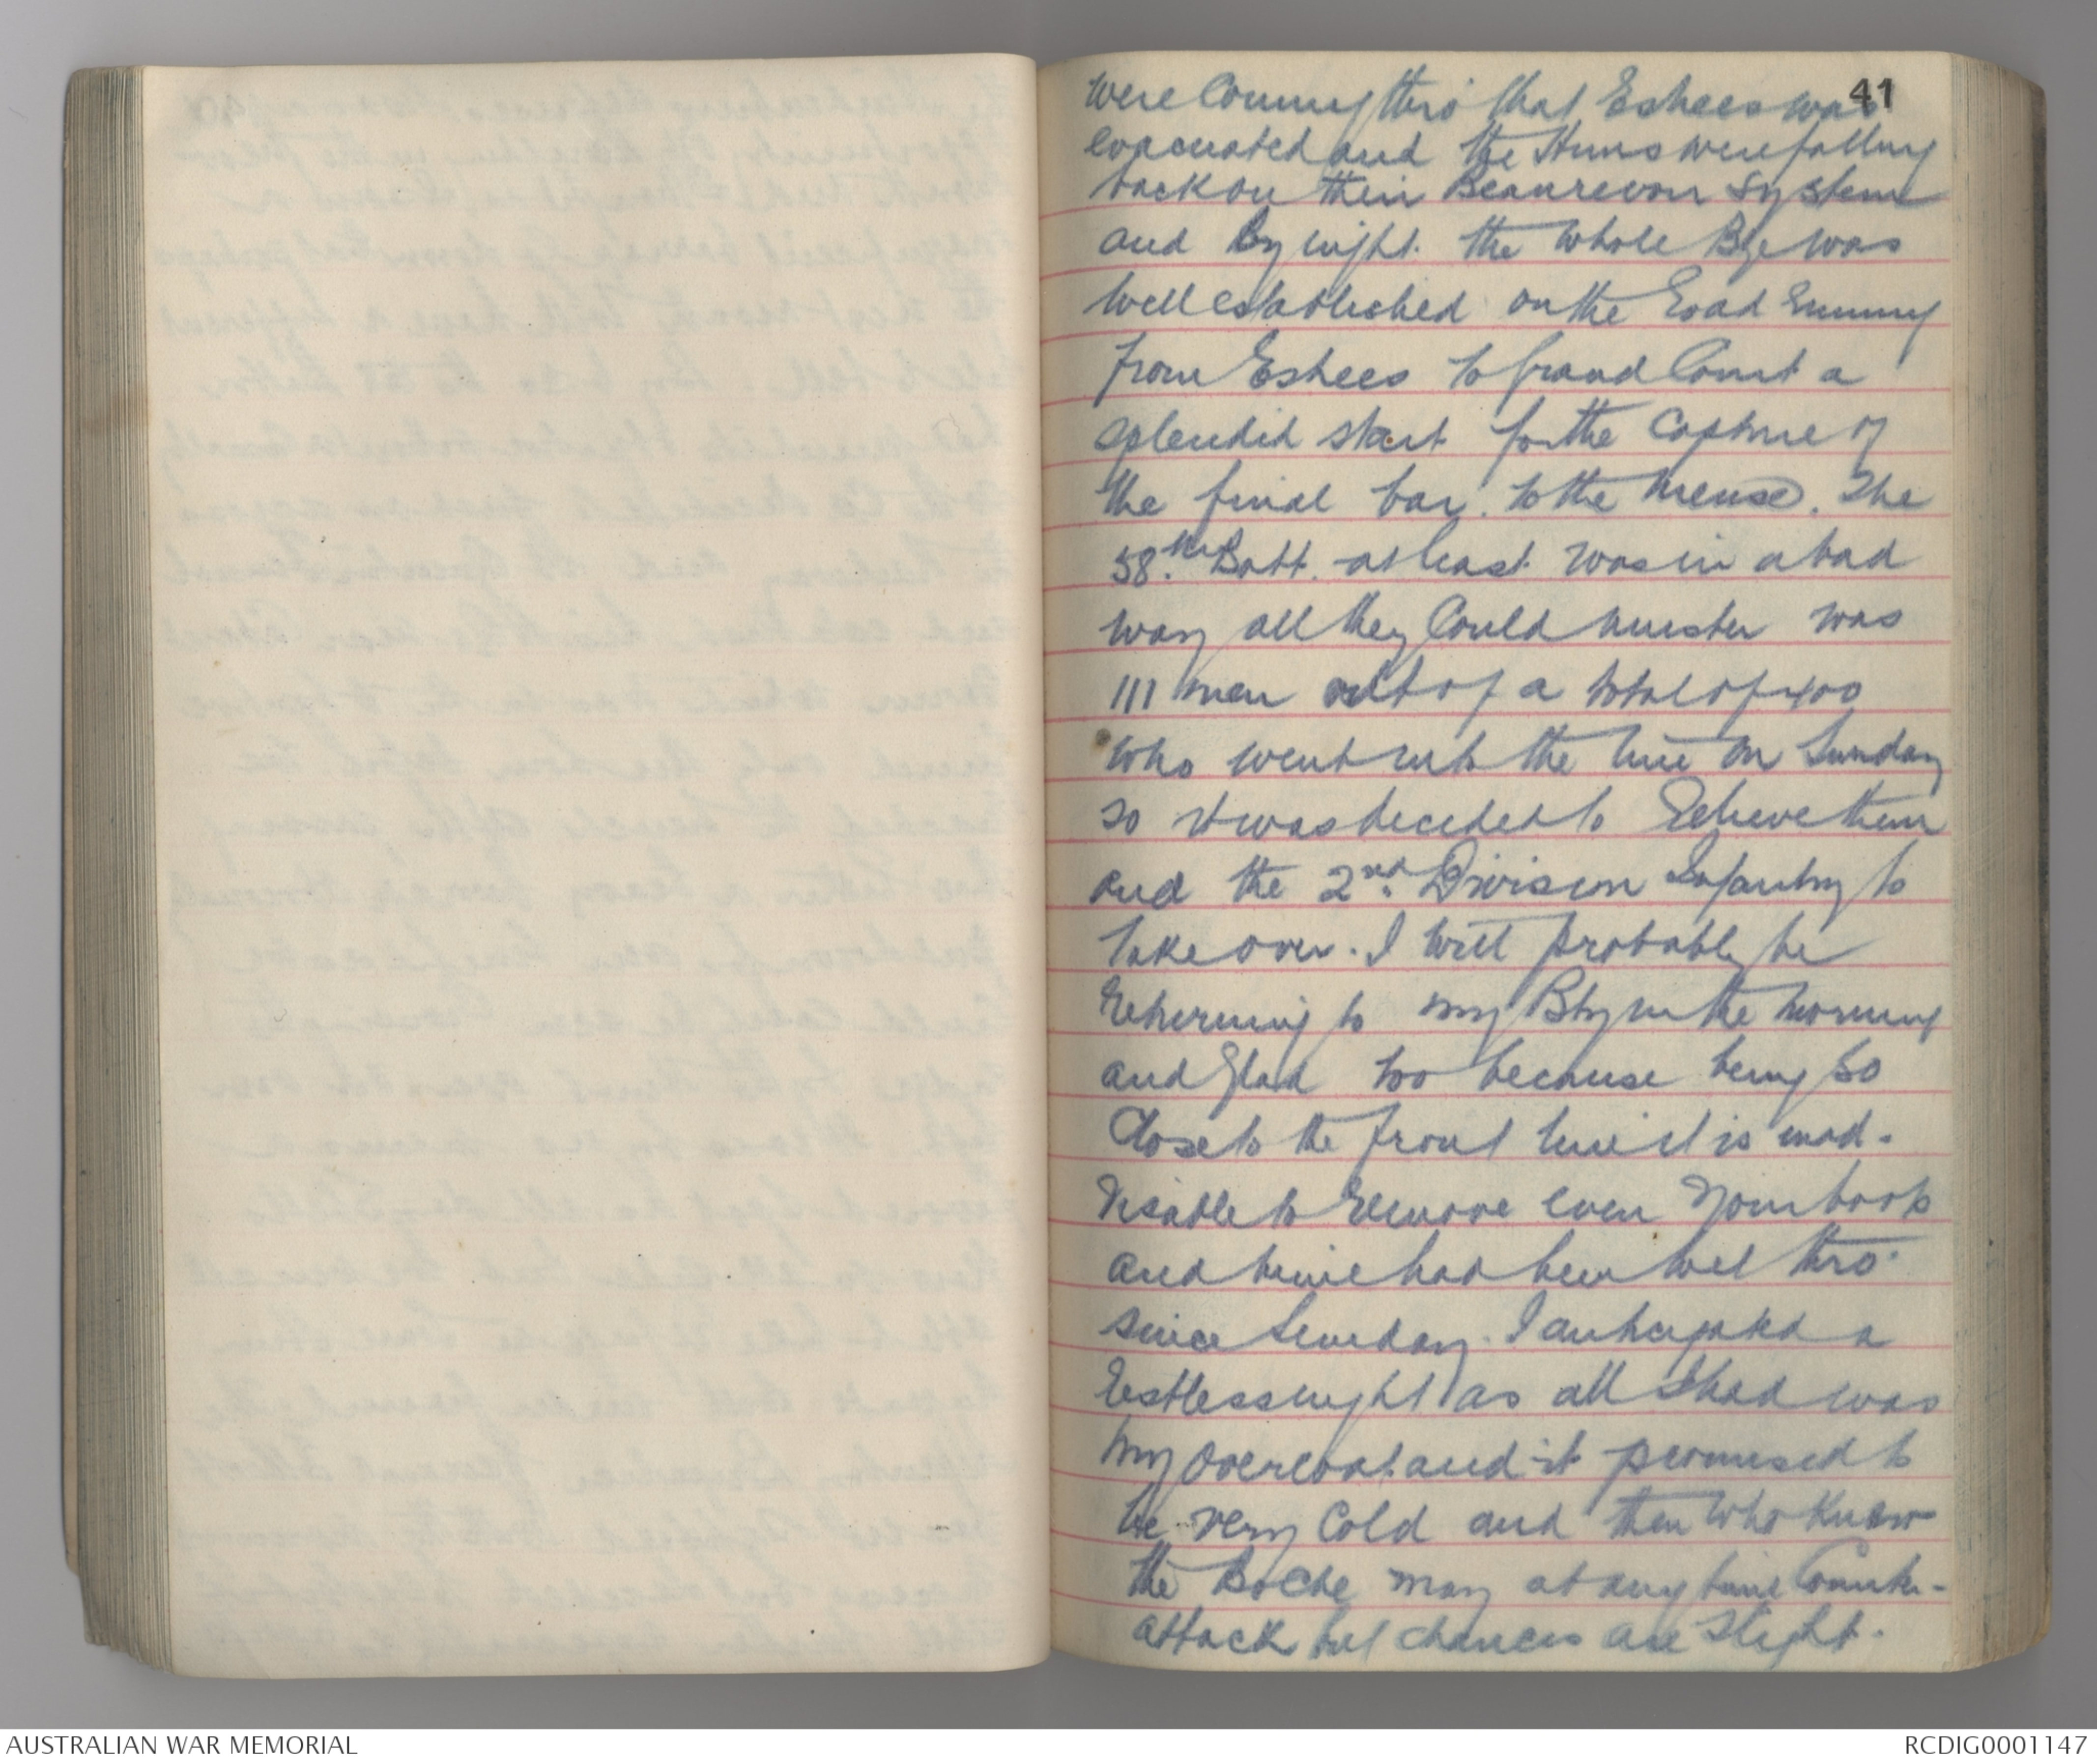 41
were coming thro' that Eshees was
evacuated and the Huns were falling
back on their Beaurevoir System
and by night the whole Bge was
well established on the Road running
from Eshees to Grand Court a
splendid start for the capture of
the final bar to the Meuse. The
58.th Batt. at least was in a bad
way all they could muster was
111 men out of a total of 400
who went into the line on Sunday
so it was decided to Relieve them
and the 2nd. Division Infantry to
take over. I will probably be
Returning to my Bty in the morning
and Glad too because being so
Close to the front line it is inad-
visable to Remove even your boots
and mine had been wet thro'
since Sunday. I anticipated a
Restless night as all I had was
my overcoat and it promised to
be very Cold and then who knew
the Boche may at any time Counter-
attack but chances are slight.
AUSTRALIAN WAR MEMORIAL
RCDIG0001147